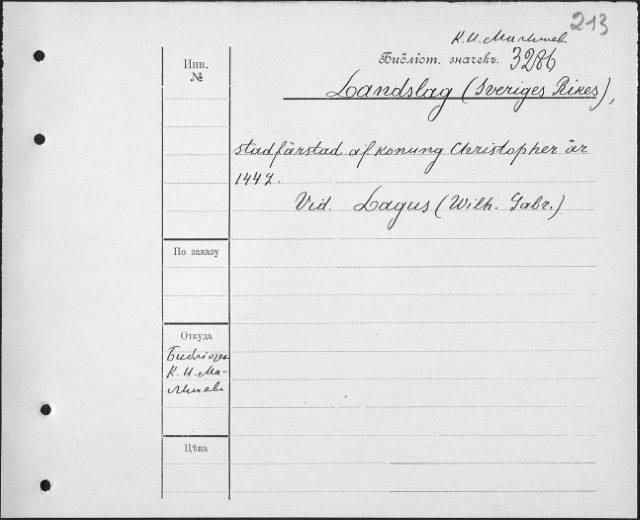 213
К. И. Малышев
Инв.
№
Библіот. значекъ. 3286
Landslag (Sveriges Rikes),
stadfärstad af konung Christopher år
1442.
Vid. Lagus (Wilh. Gabr.)
По заказу
Откуда
К. И. Ма-
лышева
Цѣна